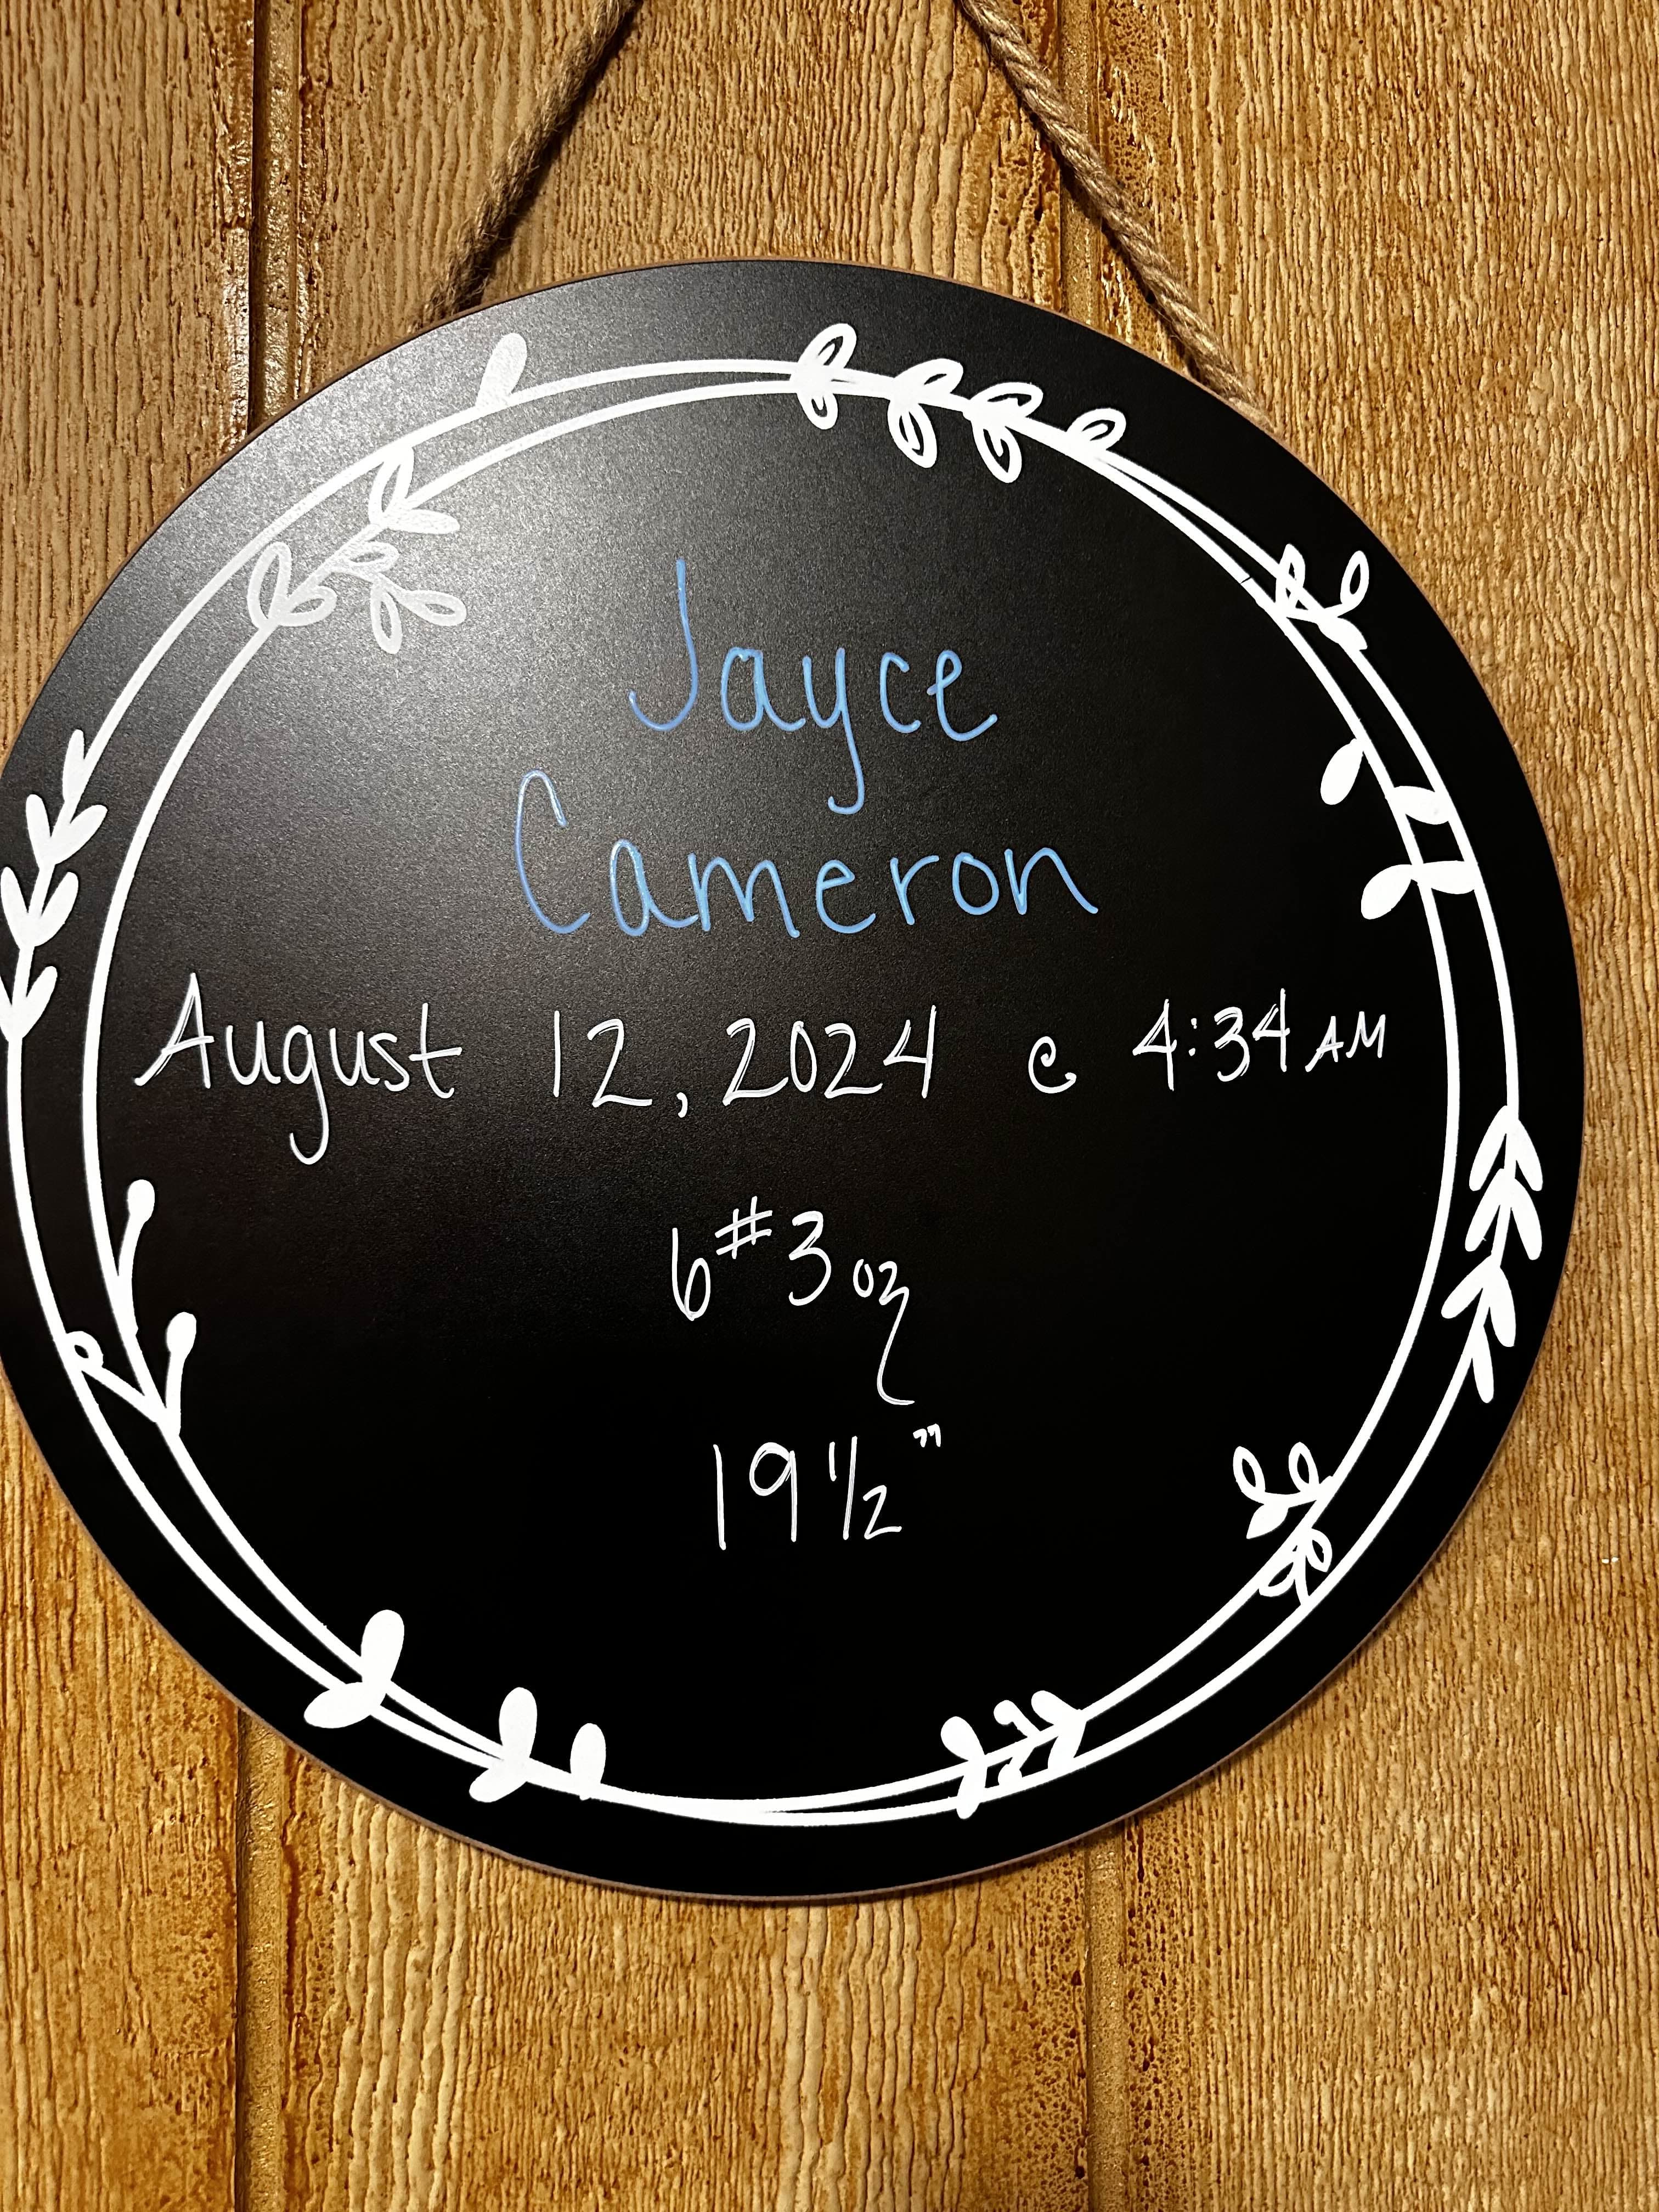 Jayce
Cameron
August 12, 2024 @ 4:34 AM
6# 3 oz
19 1/2"